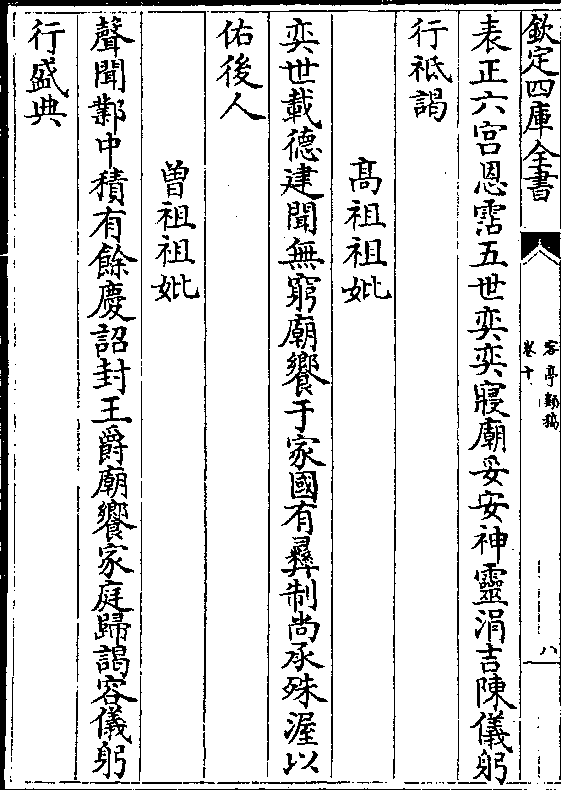 欽定四庫全書
客亭類稿
卷十
八
表正六宮恩霑五世奕奕寢廟妥安神靈涓吉陳儀躬
行祗謁
高祖祖妣
奕世載德建聞無窮廟饗于家國有彞制尚承殊渥以
佑後人
曾祖祖妣
聲聞鄴中積有餘慶詔封王爵廟饗家庭歸謁容儀躬
行盛典